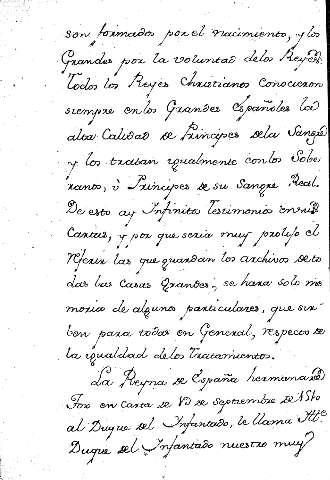 son formados por el nacimiento, y los
Grandes por la voluntad delos Reyes.
Todos los Reyes Christianos conocieron
siempre en los Grandes Españoles la
alta Calidad de Principes dela Sangre
y los trataban igualmente con los Sobe
ranos, ù Principes de su Sangre Real.
De esto ay Infinitos Testimonios en sus
Cartas, y por que seria muy prolijo el
referir las que guardan los archivos de to
das las Casas Grandes, se hara solo me
moria de algunas particulares, que sir
ben para todas en General, respecto de
la igualdad delos Tratamientos.
La Reyna de España hermana de
en carta de de Septiembre de
al Duque del Infantado, le llama
Duque del Infantado nuestro muy